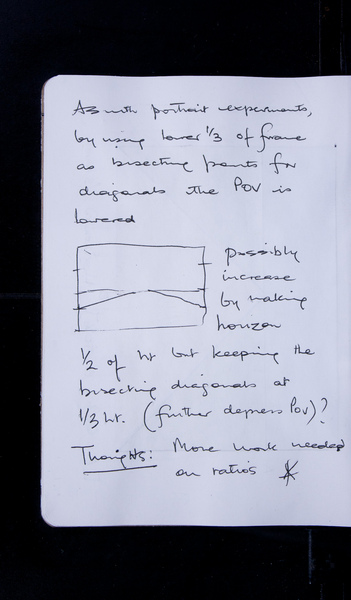 As with portrait experiments,
by using lower 1/3 of frame
as bisecting points for
diagonals the POV is
lowered
possibly
increase
by making
horizon
1/2 of ht but keeping the
bisecting diagonals at
1/3 ht. (further depress POV)?
Thoughts: More work needed
on ratios